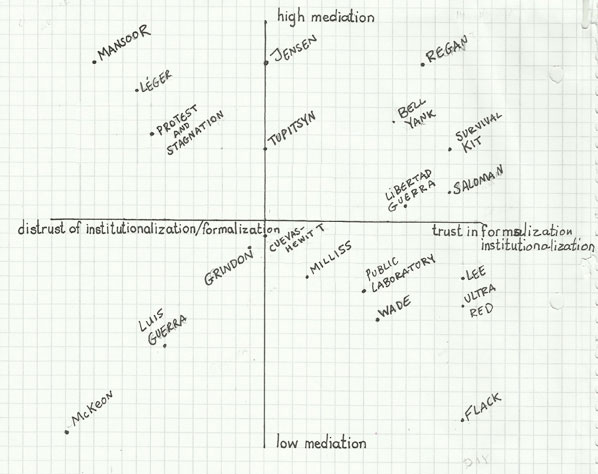 high mediation
MANSOOR
JENSEN
REGAN
LÉGER
PROTEST
AND
STAGNATION
TUPITSYN
BELL
YANK
SURVIVAL
KIT
LIBERTAD
GUERRA
SALOMAN
distrust of institutionalization/formalization
trust in formalization
institutionalization
CUEVAS-
HEWITT
GRINDON
MILLISS
PUBLIC
LABORATORY
LEE
ULTRA
RED
WADE
LUIS
GUERRA
McKEON
FLACK
low mediation